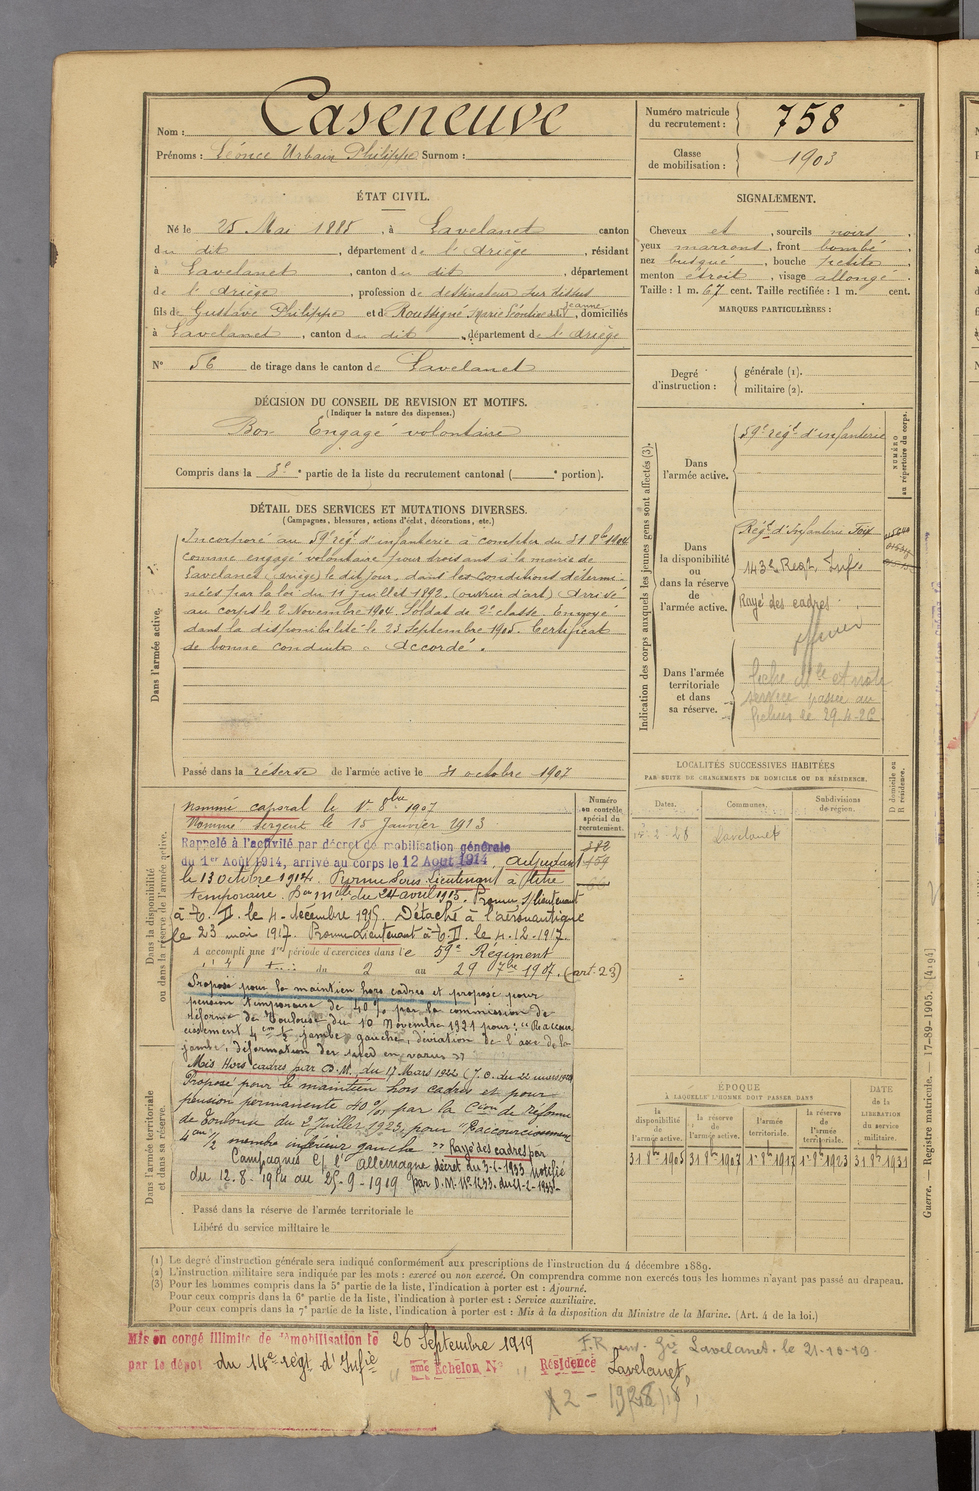 Nom : Caseneuve
Prénoms : Léonce Urbain Philippe Surnom :
Numéro matricule du recrutement : 758
Classe de mobilisation : 1903
ÉTAT CIVIL.
Né le 25 Mai 1885, à Lavelanet canton
du dit, département de l'Ariège, résidant
à Lavelanet, canton du dit, département
de l'Ariège, profession de dessinateur sur tissus
fils de Gustave Philippe et de Roussigné Marie Léontine Jeanne, domiciliés
à Lavelanet, canton du dit, département de l'Ariège
N° 56 de tirage dans le canton de Lavelanet
SIGNALEMENT.
Cheveux et, sourcils noirs
yeux marrons, front bombé
nez busqué, bouche petite
menton étroit, visage allongé.
Taille : 1 m. 67 cent. Taille rectifiée : 1 m. cent.
MARQUES PARTICULIÈRES :
Degré d'instruction :
générale (1).
militaire (2).
DÉCISION DU CONSEIL DE REVISION ET MOTIFS.
(Indiquer la nature des dispenses.)
Bon Engagé volontaire
Compris dans la 3e partie de la liste du recrutement cantonal ( e portion).
DÉTAIL DES SERVICES ET MUTATIONS DIVERSES.
(Campagnes, blessures, actions d'éclat, décorations, etc.)
Dans l'armée active.
Incorporé au 59e régt d'infanterie à compter du 31 8bre 1904
comme engagé volontaire pour trois ans à la mairie de
Lavelanet (Ariège) le dit jour, dans les conditions détermi-
nées par la loi du 11 juillet 1892. (ouvrier d'art) Arrivé
au corps le 2 Novembre 1904. Soldat de 2e classe. Envoyé
dans la disponibilité le 23 Septembre 1905. Certificat
de bonne conduite "Accordé".
Passé dans la réserve de l'armée active le 31 octobre 1907
Indication des corps auxquels les jeunes gens sont affectés (3).
NUMÉRO au répertoire du corps.
Dans l'armée active.
59e régt d'infanterie
Dans la disponibilité ou dans la réserve de l'armée active.
Régt d'Infanterie Foix
143e Regt Infie
Rayé des cadres
Dans l'armée territoriale et dans sa réserve.
service passée au
fichier le 29-4-26
LOCALITÉS SUCCESSIVES HABITÉES
PAR SUITE DE CHANGEMENTS DE DOMICILE OU DE RÉSIDENCE.
D domicile ou R résidence.
Dates. Communes. Subdivisions de région.
Lavelanet
Dans la disponibilité ou dans la réserve de l'armée active.
Numéro au contrôle spécial du recrutement.
Nommé caporal le 1er 8bre 1907
Nommé sergent le 15 Janvier 1913
Rappelé à l'activité par décret de mobilisation générale
du 1er Août 1914, arrivé au corps le 12 Août 1914. Adjudant
le 13 octobre 1914. Promu Sous-Lieutenant à titre
temporaire. Don mlle du 24 avril 1915. Promu s/lieutenant
à T. D. le 4 décembre 1915. Détaché à l'aéronautique
le 23 mai 1917. Promu Lieutenant à T. D. le 4-12-1917.
A accompli une 1re période d'exercices dans le 59e Régiment
du 2 au 29 7bre 1907. (art. 23)
Proposé pour le maintien hors cadres et proposé pour
pension temporaire de 40% par la commission de
réforme de Toulouse du 10 Novembre 1921 pour : "Raccour-
cissement 4 cm ½ jambe gauche, déviation de l'axe de la
jambe, déformation du pied en varus"
Mis Hors cadres par D.M. du 17 Mars 1922 (J.O. du 22 mars 1922
Dans l'armée territoriale et dans sa réserve.
Proposé pour le maintien hors cadres et pour
pension permanente 40% par la Cion de Réforme
de Toulouse du 2 Juillet 1923 pour "Raccourcissement
4 cm ½ membre inférieur gauche" Rayé des cadres par
Campagnes C/ l'Allemagne décret du 3-2-1933 notifié
du 12-8-1914 au 25-9-1919 par D.M. N° 1233 du 21-2-1933
Passé dans la réserve de l'armée territoriale le
Libéré du service militaire le
ÉPOQUE
À LAQUELLE L'HOMME DOIT PASSER DANS
DATE DE LA LIBÉRATION du service militaire.
la disponibilité de l'armée active. la réserve de l'armée active. l'armée territoriale. la réserve de l'armée territoriale.
31 8bre 1905 31 8bre 1907 1er 8bre 1917 1er 8bre 1923 31 8bre 1931
Guerre. — Registre matricule. — 17-89-1905. [4194]
(1) Le degré d'instruction générale sera indiqué conformément aux prescriptions de l'instruction du 4 décembre 1889.
(2) L'instruction militaire sera indiquée par les mots : exercé ou non exercé. On comprendra comme non exercés tous les hommes n'ayant pas passé au drapeau.
(3) Pour les hommes compris dans la 5e partie de la liste, l'indication à porter est : Ajourné.
Pour ceux compris dans la 6e partie de la liste, l'indication à porter est : Service auxiliaire.
Pour ceux compris dans la 7e partie de la liste, l'indication à porter est : Mis à la disposition du Ministre de la Marine. (Art. 4 de la loi.)
Mis en congé illimité de démobilisation le 26 Septembre 1919
par le dépôt du 14e régt d'Infie " ème Échelon N° " Résidence Lavelanet,
Lavelanet le 21-10-19